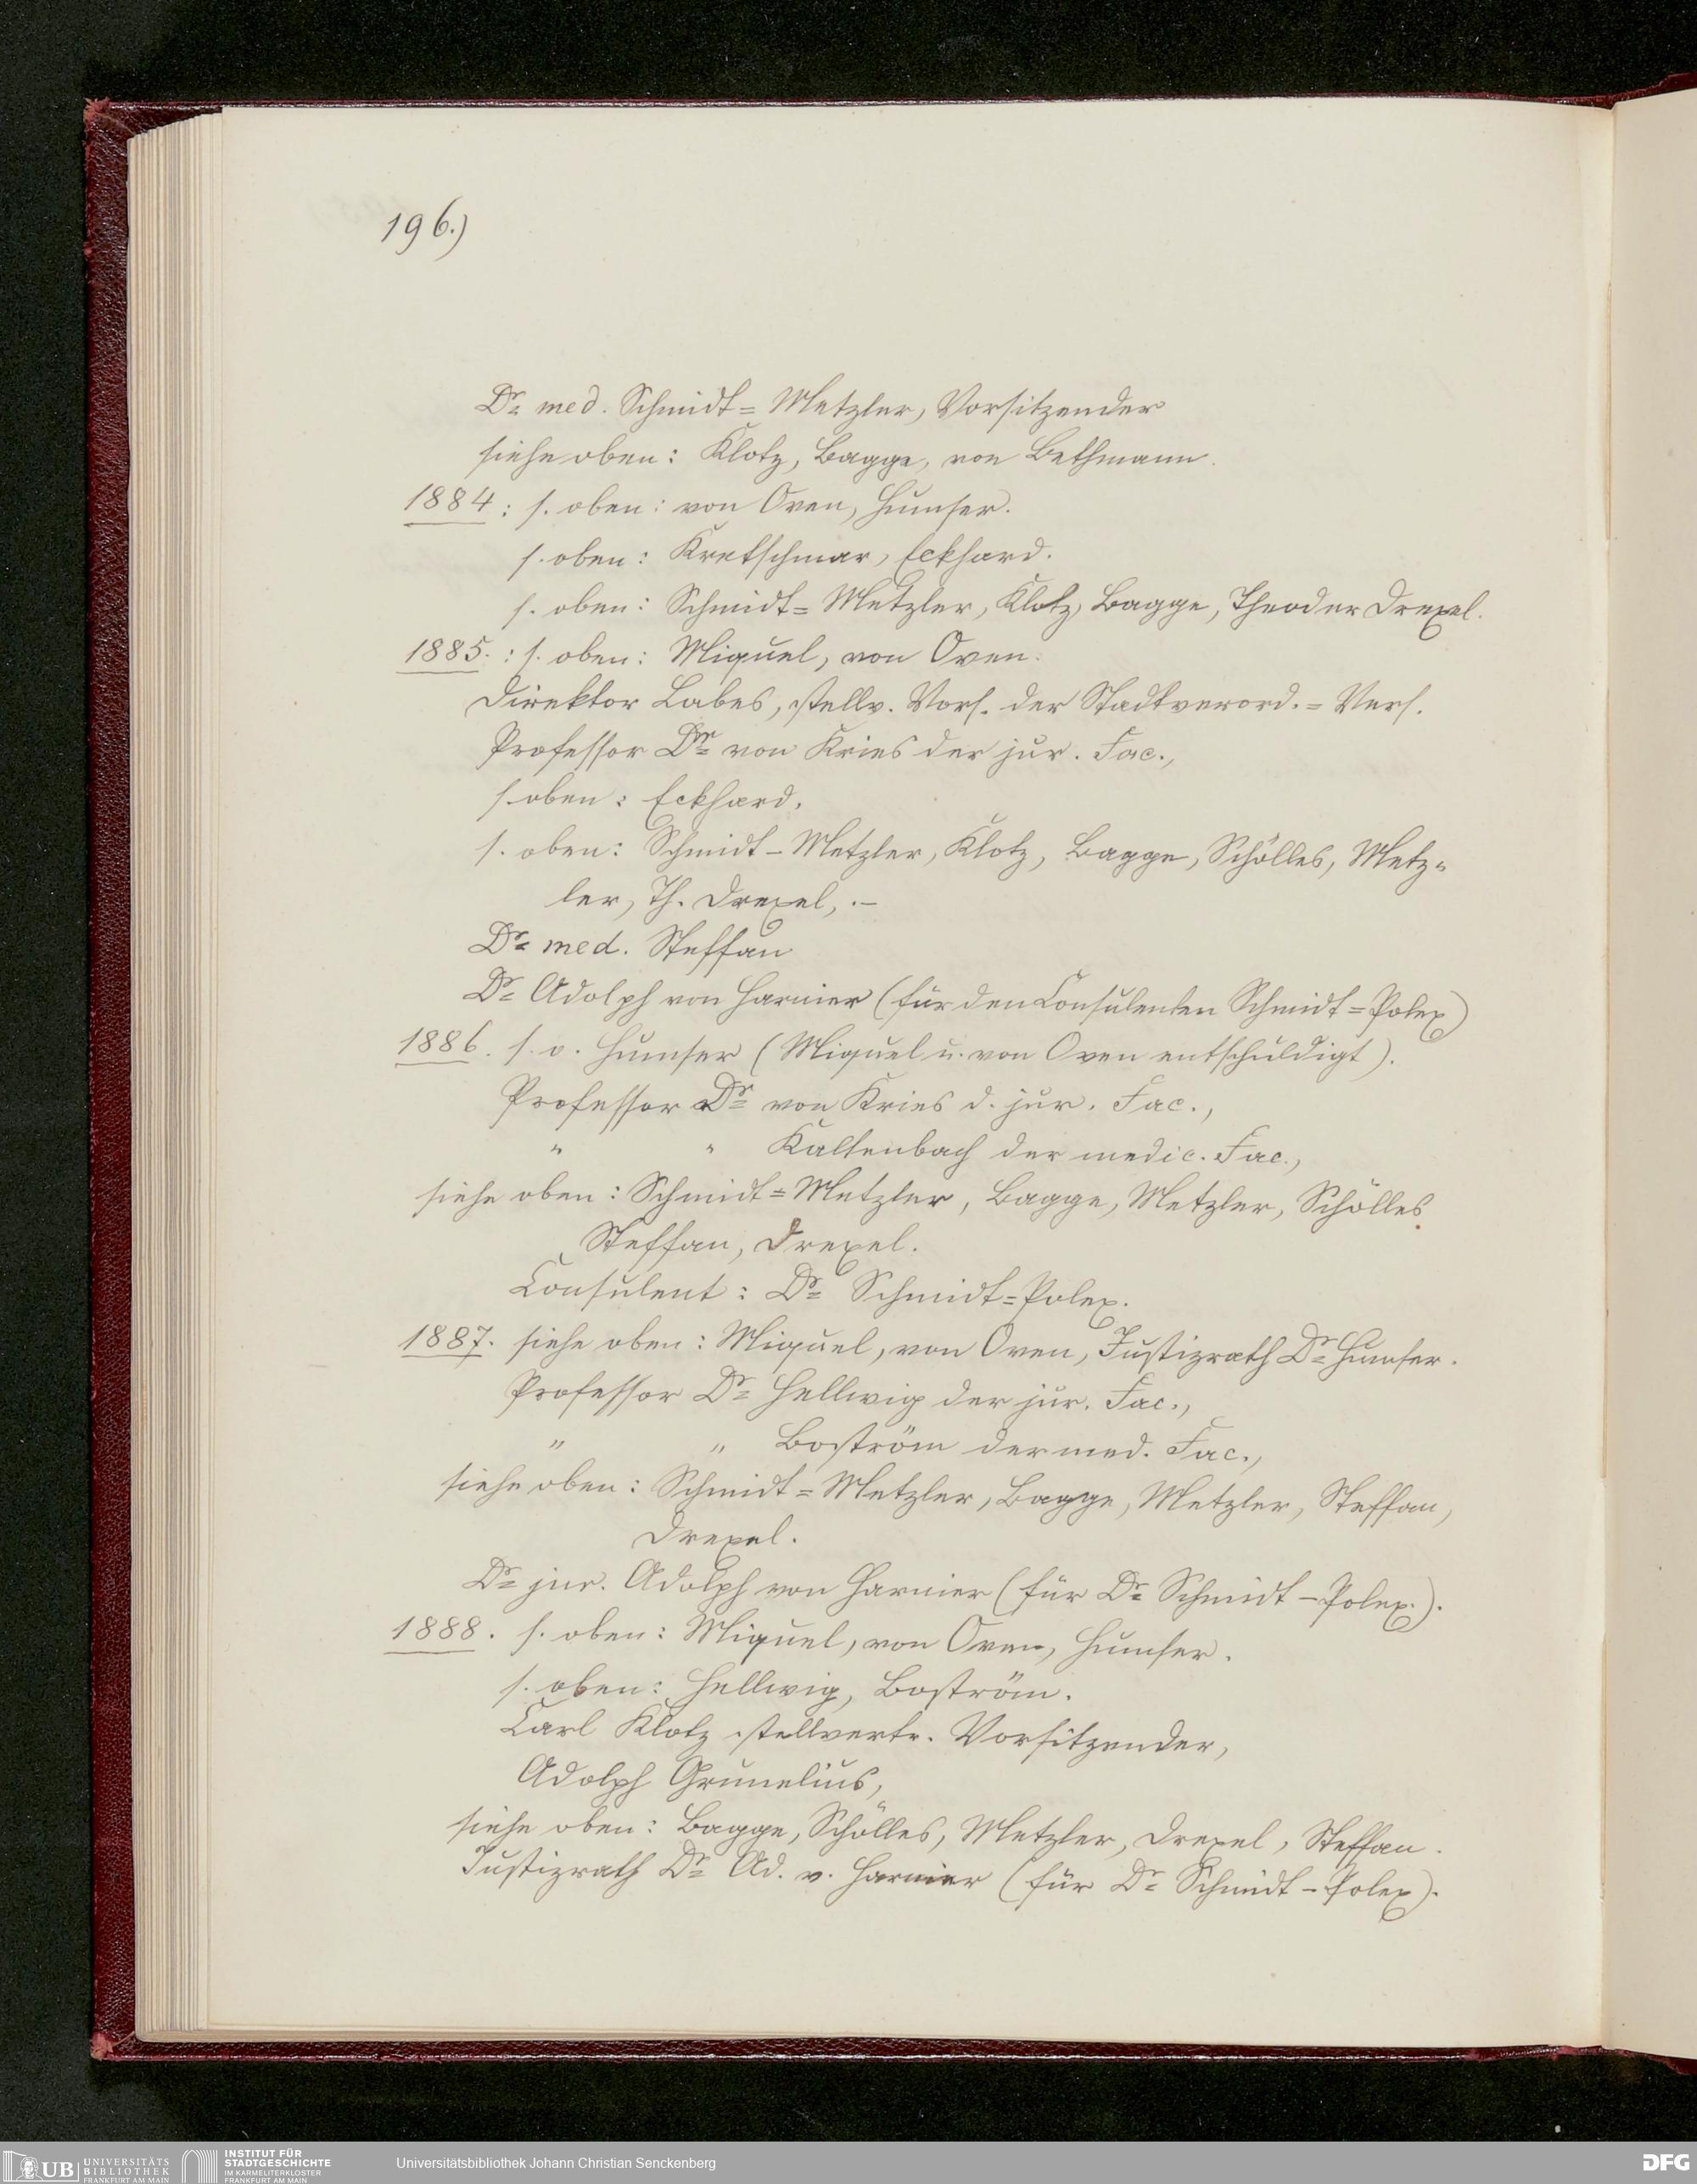 196.)
Dr. med. Schmidt=Metzler, Vorsitzender
siehe oben: Klotz, Bagge, von Bethmann.
1884: s. oben: von Oven, Humser.
s. oben: Kretschmar, Eckhard.
s. oben: Schmidt=Metzler, Klotz, Bagge, Theodor Drexel.
1885.: s. oben: Miquel, von Oven.
Direktor Labes, stellv. Vors. der Stadtverord.=Vers.
Professor Dr. von Kries der jur. Fac.,
s. oben: Eckhard.
s. oben: Schmidt-Metzler, Klotz, Bagge, Schölles, Metz=
ler, Th. Drexel, .–
Dr. med. Steffan
Dr. Adolph von Harnier (für den Consulenten Schmidt=Polex)
1886. s. o. Humser (Miquel u. von Oven entschuldigt).
Professor Dr. von Kries d. jur. Fac.,
" " Kaltenbach der medic. Fac.,
siehe oben: Schmidt=Metzler, Bagge, Metzler, Schölles
Steffan, Drexel.
Consulent: Dr. Schmidt=Polex.
1887. siehe oben: Miquel, von Oven, Justizrath Dr. Humser.
Professor Dr. Hellwig der jur. Fac.,
" " Boström der med. Fac.,
siehe oben: Schmidt=Metzler, Bagge, Metzler, Steffan,
Drexel.
Dr. jur. Adolph von Harnier (für Dr. Schmidt-Polex.).
1888. s. oben: Miquel, von Oven, Humser.
s. oben: Hellwig, Boström.
Carl Klotz stellvertr. Vorsitzender,
Adolph Grunelius,
siehe oben: Bagge, Schölles, Metzler, Drexel, Steffan.
Justizrath Dr. Ad. v. Harnier (für Dr. Schmidt-Polex).
UB UNIVERSITÄTS
BIBLIOTHEK
FRANKFURT AM MAIN
INSTITUT FÜR
STADTGESCHICHTE
IM KARMELITERKLOSTER
FRANKFURT AM MAIN
Universitätsbibliothek Johann Christian Senckenberg
DFG